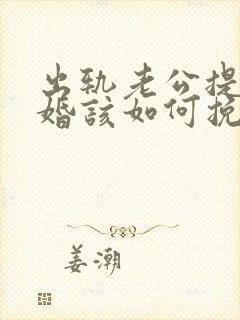 出轨老公提
婚該如何挽
姜潮